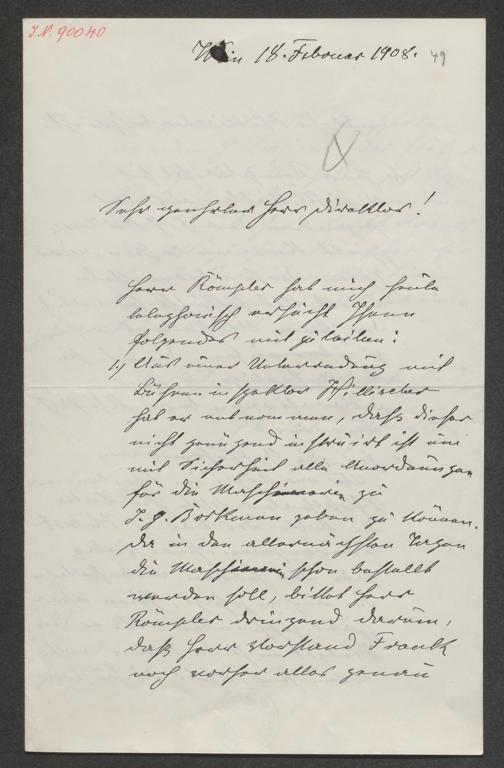 J.N. 90040
Wien 18. Februar 1908.
49
Sehr geehrter Herr Direktor!
Herr Römpler hat mich heute
telephonisch ersucht Ihnen
folgendes mit zu teilen:
1.) Aus einer Unterredung mit
Bühneninspektor Hillischer
hat er entnommen, dass dieser
nicht genügend instruirt ist um
mit Sicherheit alle Anordnungen
für die Maschinerie zu
J. G. Borkman geben zu können.
Da in den allernächsten Tagen
die Maschinerie schon bestellt
werden soll, bittet Herr
Römpler dringend darum,
daß Herr Vorstand Frank
noch vorher alles genau